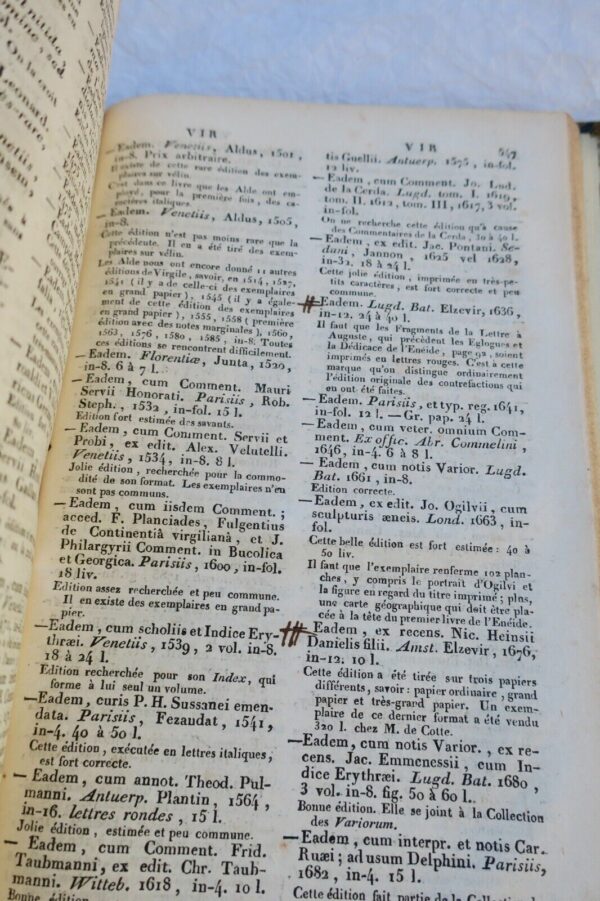 VIR
— Eadem. Venetiis, Aldus, 1501,
in-8. Prix arbitraire.
Il existe de cette rare édition des exem-
plaires sur vélin.
C'est dans ce livre que les Alde ont em-
ployé, pour la première fois, des ca-
ractères italiques.
— Eadem. Venetiis, Aldus, 1505,
in-8.
Cette édition n'est pas moins rare que la
précédente. Il en a été tiré des exem-
plaires sur vélin.
Les Alde nous ont encore donné 11 autres
éditions de Virgile, savoir, en 1514, 1527,
1541 (il y a de celle-ci des exemplaires
en grand papier), 1545 (il y a égale-
ment de cette édition des exemplaires
en grand papier), 1555, 1558 (première
édition avec des notes marginales), 1560,
1563, 1576, 1580, 1585, in-8. Toutes
ces éditions se rencontrent difficilement.
— Eadem. Florentiæ, Junta, 1520,
in-8. 6 à 7 l.
— Eadem, cum Comment. Mauri
Servii Honorati. Parisiis, Rob.
Steph., 1532, in-fol. 15 l.
Edition fort estimée des savants.
— Eadem, cum Comment. Servii et
Probi, ex edit. Alex. Velutelli.
Venetiis, 1534, in-8. 8 l.
Jolie édition, recherchée pour la commo-
dité de son format. Les exemplaires n'en
sont pas communs.
— Eadem, cum iisdem Comment.;
acced. F. Planciades, Fulgentius
de Continentiâ virgilianâ, et J.
Philargyrii Comment. in Bucolica
et Georgica. Parisiis, 1600, in-fol.
18 liv.
Edition assez recherchée et peu commune.
Il en existe des exemplaires en grand pa-
pier.
— Eadem, cum scholiis et Indice Ery-
thræi. Venetiis, 1539, 2 vol. in-8.
18 à 24 l.
Edition recherchée pour son Index, qui
forme à lui seul un volume.
— Eadem, curis P. H. Sussanei emen-
data. Parisiis, Fezandat, 1541,
in-4. 40 à 50 l.
Cette édition, exécutée en lettres italiques,
est fort correcte.
— Eadem, cum annot. Theod. Pul-
manni. Antuerp. Plantin, 1564,
in-16. lettres rondes, 15 l.
Jolie édition, estimée et peu commune.
— Eadem, cum Comment. Frid.
Taubmanni, ex edit. Chr. Taub-
manni. Witteb. 1618, in-4. 10 l.
Bonne édition.
VIR 547
tis Guellii. Antuerp. 1575, in-fol.
12 liv.
— Eadem, cum Comment. Jo. Lud.
de la Cerda. Lugd. tom. I. 1619,
tom. II. 1612, tom. III, 1617, 3 vol.
in-fol.
On ne recherche cette édition qu'à cause
des Commentaires de la Cerda, 30 à 40 l.
— Eadem, ex edit. Jac. Pontani. Se-
dani, Jannon, 1625 vel 1628,
in-32. 18 à 24 l.
Cette jolie édition, imprimée en très-pe-
tits caractères, est fort correcte et peu
commune.
Eadem. Lugd. Bat. Elzevir, 1636,
in-12. 24 à 40 l.
Il faut que les Fragments de la Lettre à
Auguste, qui précèdent les Eglogues et
la Dédicace de l'Enéide, page 92, soient
imprimés en lettres rouges. C'est à cette
marque qu'on distingue ordinairement
l'édition originale des contrefactions qui
en ont été faites.
— Eadem. Parisiis, et typ. reg. 1641,
in-fol. 12 l. — Gr. pap. 24 l.
— Eadem, cum veter. omnium Com-
ment. Ex offic. Abr. Commelini,
1646, in-4. 6 à 8 l.
— Eadem, cum notis Varior. Lugd.
Bat. 1661, in-8.
Edition correcte.
— Eadem, ex edit. Jo. Ogilvii, cum
sculpturis æneis. Lond. 1663, in-
fol.
Cette belle édition est fort estimée : 40 à
50 liv.
Il faut que l'exemplaire renferme 102 plan-
ches, y compris le portrait d'Ogilvi et
la figure en regard du titre imprimé; plus,
une carte géographique qui doit être pla-
cée à la tête du premier livre de l'Enéide.
Eadem, ex recens. Nic. Heinsii
Danielis filii. Amst. Elzevir, 1676,
in-12. 10 l.
Cette édition a été tirée sur trois papiers
différents, savoir : papier ordinaire, grand
papier et très-grand papier. Un exem-
plaire de ce dernier format a été vendu
320 l. chez M. de Cotte.
— Eadem, cum notis Varior., ex re-
cens. Jac. Emmenessii, cum In-
dice Erythræi. Lugd. Bat. 1680,
3 vol. in-8. fig. 50 à 60 l.
Bonne édition. Elle se joint à la Collection
des Variorum.
— Eadem, cum interpr. et notis Car.
Ruæi; ad usum Delphini. Parisiis,
1682, in-4. 15 l.
Cette édition fait partie de la